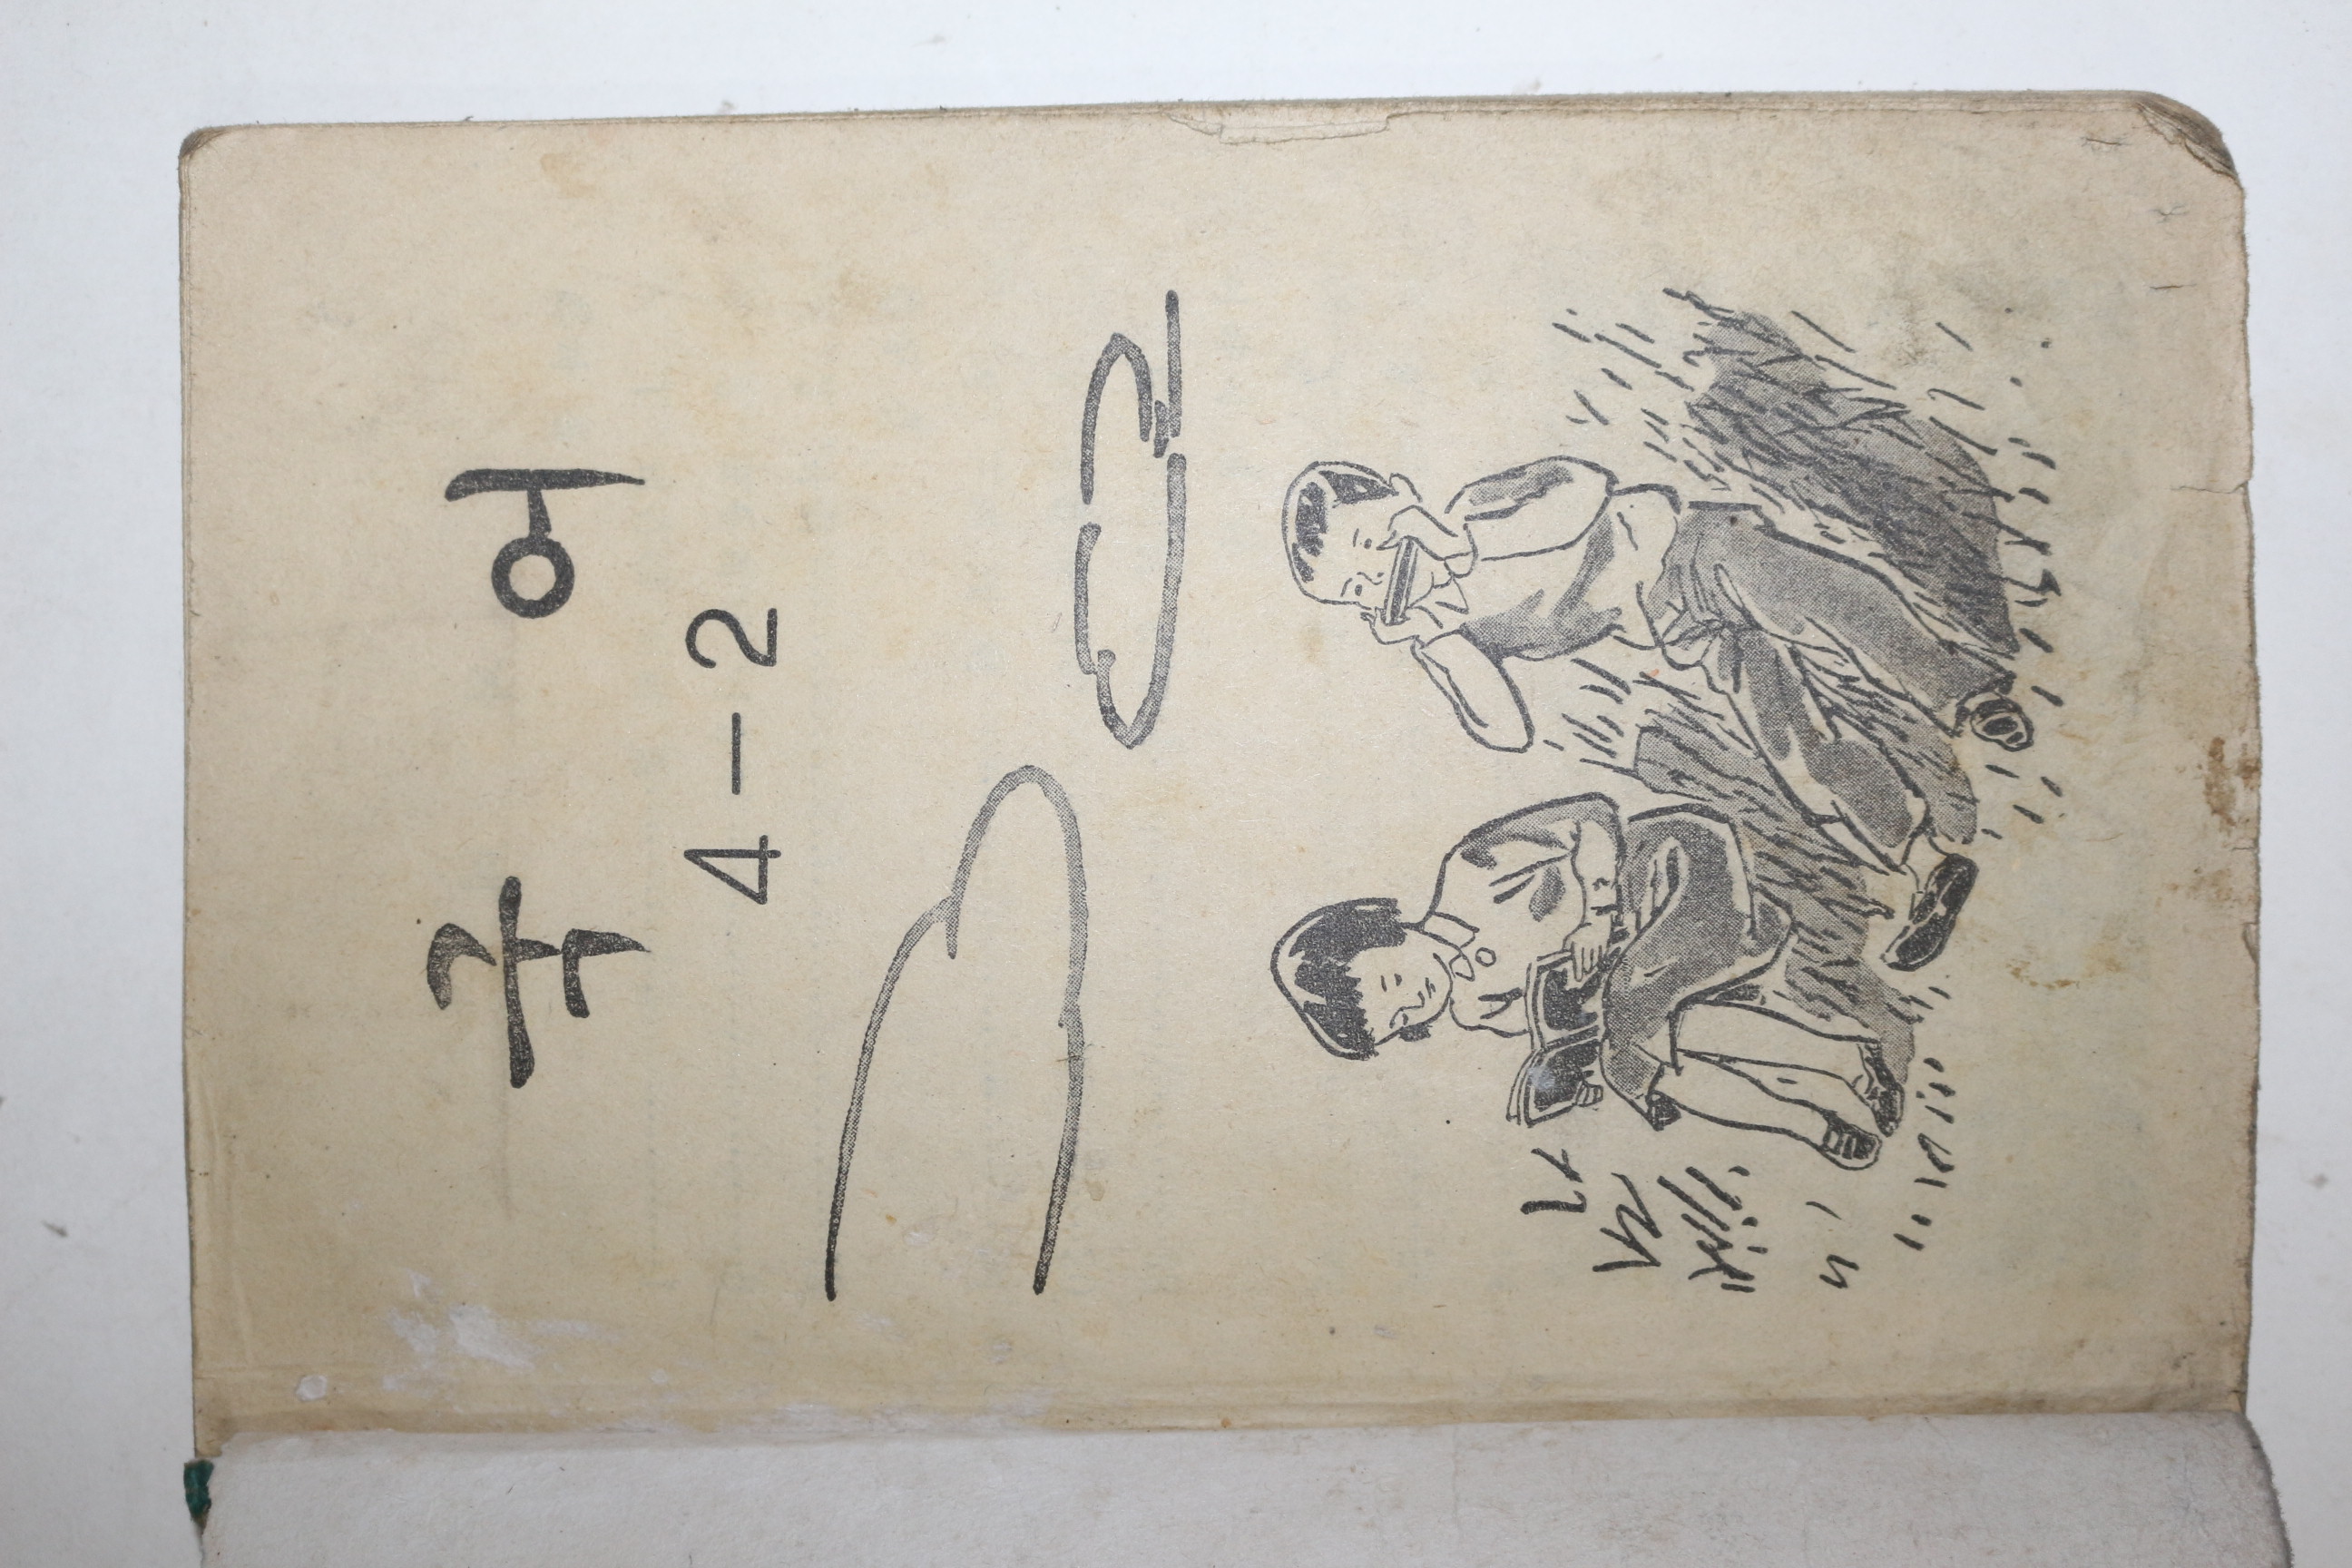 국 어
4-2